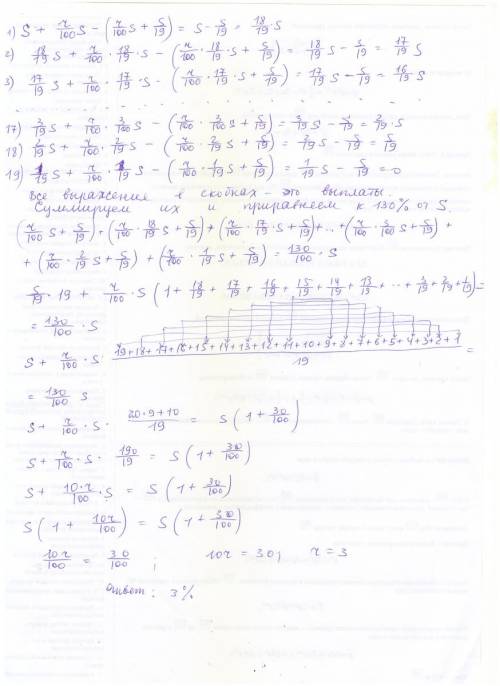 1) S + r/100 S - (r/100 S + S/19) = S - S/19 = 18/19 · S
2) 18/19 S + r/100 · 18/19 · S - (r/100 · 18/19 · S + S/19) = 18/19 S - S/19 = 17/19 S
3) 17/19 S + r/100 · 17/19 · S - (r/100 · 17/19 · S + S/19) = 17/19 S - S/19 = 16/19 S
17) 3/19 S + r/100 · 3/100 S - (r/100 · 3/100 S + S/19) = 3/19 S - S/19 = 2/19 · S
18) 2/19 S + r/100 · 2/19 S - (r/100 · 2/19 S + S/19) = 2/19 S - S/19 = S/19
19) 1/19 S + r/100 · 1/19 S - (r/100 · 1/19 S + S/19) = 1/19 S - S/19 = 0
Все выражения в скобках - это выплаты.
Суммируем их и приравняем к 130% от S.
(r/100 S + S/19) + (r/100 · 18/19 S + S/19) + (r/100 · 17/19 S + S/19) + ... + (r/100 · 3/100 S + S/19) +
+ (r/100 · 2/19 S + S/19) + (r/100 · 1/19 S + S/19) = 130/100 · S
S/19 · 19 + r/100 · S (1 + 18/19 + 17/19 + 16/19 + 15/19 + 14/19 + 13/19 + ... + 3/19 + 2/19 + 1/19) =
= 130/100 · S
S + r/100 · S · (19+18+17+16+15+14+13+12+11+10+9+8+7+6+5+4+3+2+1)/19 =
= 130/100 S
S + r/100 · S · (20·9+10)/19 = S (1 + 30/100)
S + r/100 · S · 190/19 = S (1 + 30/100)
S + 10·r/100 · S = S (1 + 30/100)
S (1 + 10r/100) = S (1 + 30/100)
10r/100 = 30/100 ; 10r = 30; r = 3
Ответ: 3%